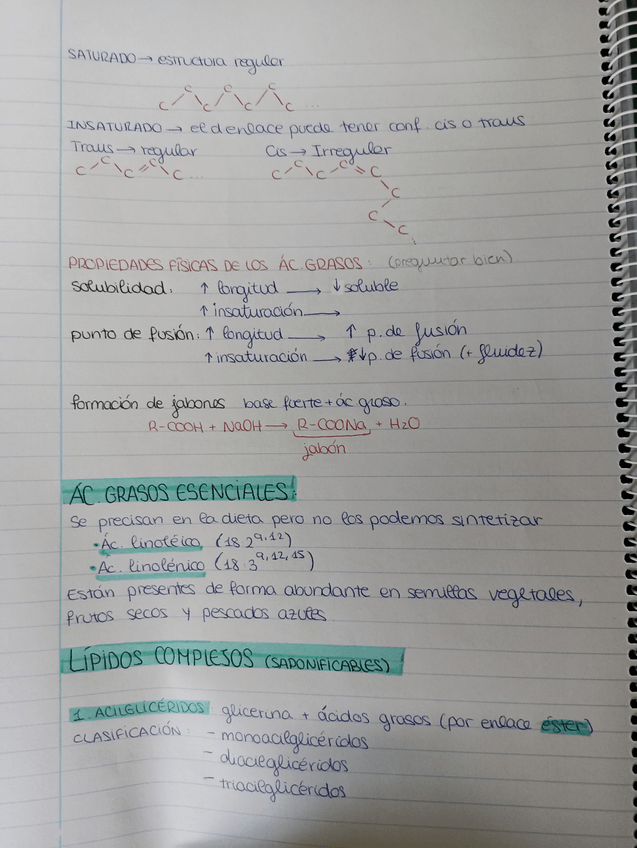 SATURADO → estructura regular
C C C C C C ...
INSATURADO → el d.enlace puede tener conf. cis o trans
Trans → regular Cis → Irregular
C C C C C ... C C C C C
C
C
C
PROPIEDADES FÍSICAS DE LOS ÁC. GRASOS: (preguntar bien)
solubilidad: ↑ longitud → ↓ soluble
↑ insaturación →
punto de fusión: ↑ longitud → ↑ p. de fusión
↑ insaturación → ↓ p. de fusión (+ fluidez)
formación de jabones base fuerte + ác graso.
R-COOH + NaOH → R-COONa + H2O
jabón
ÁC. GRASOS ESENCIALES:
Se precisan en la dieta pero no los podemos sintetizar
• Ác. linoléico (18:2 9,12)
• Ác. linolénico (18:3 9,12,15)
Están presentes de forma abundante en semillas vegetales,
frutos secos y pescados azules
LÍPIDOS COMPLEJOS (SAPONIFICABLES)
1. ACILGLICÉRIDOS: glicerina + ácidos grasos (por enlace éster)
CLASIFICACIÓN: - monoacilglicéridos
- diacilglicéridos
- triacilglicéridos